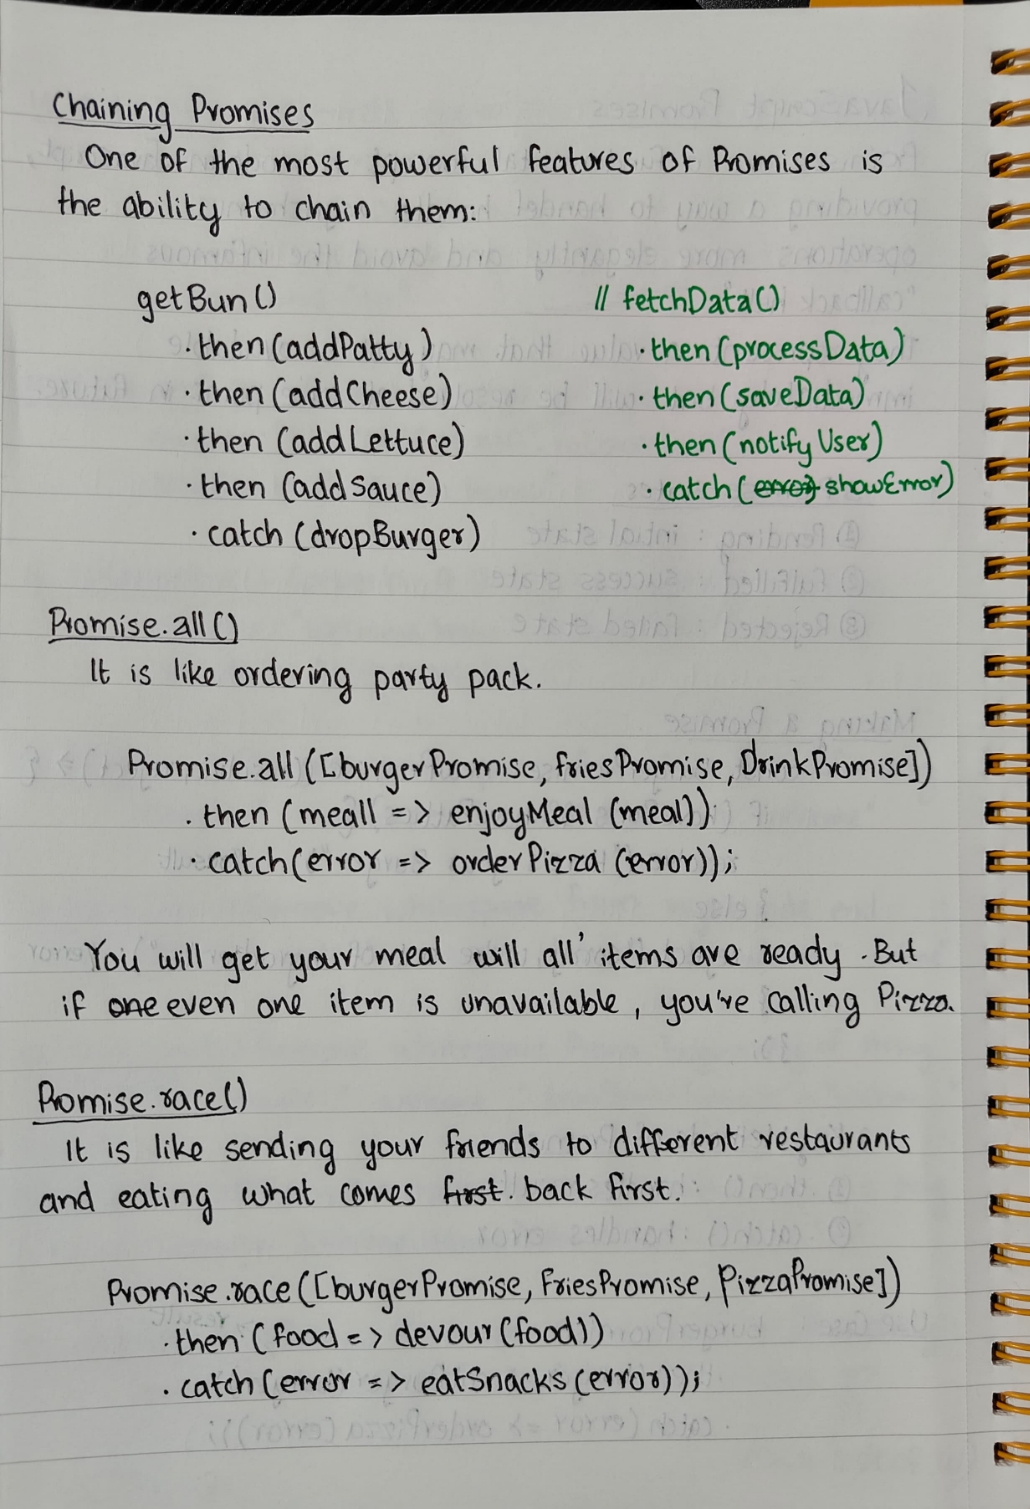 Chaining Promises
One of the most powerful features of Promises is
the ability to chain them:
getBun()
.then(addPatty)
.then(addCheese)
.then(addLettuce)
.then(addSauce)
.catch(dropBurger)
// fetchData()
.then(processData)
.then(saveData)
.then(notifyUser)
.catch(error) showError)
Promise.all()
It is like ordering party pack.
Promise.all([burgerPromise, friesPromise, DrinkPromise])
.then(meall => enjoyMeal(meal))
.catch(error => orderPizza(error));
You will get your meal will all' items are ready. But
if one even one item is unavailable, you're calling Pizza.
Promise.race()
It is like sending your friends to different restaurants
and eating what comes first. back first.
Promise.race([burgerPromise, FriesPromise, PizzaPromise])
.then(food => devour(food))
.catch(error => eatSnacks(error));